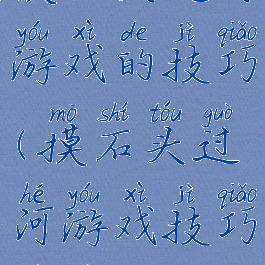 yóu xì de jì qiǎo
游戏的技巧
mō shí tóu guò
(摸石头过
hé yóu xì jì qiǎo
河游戏技巧